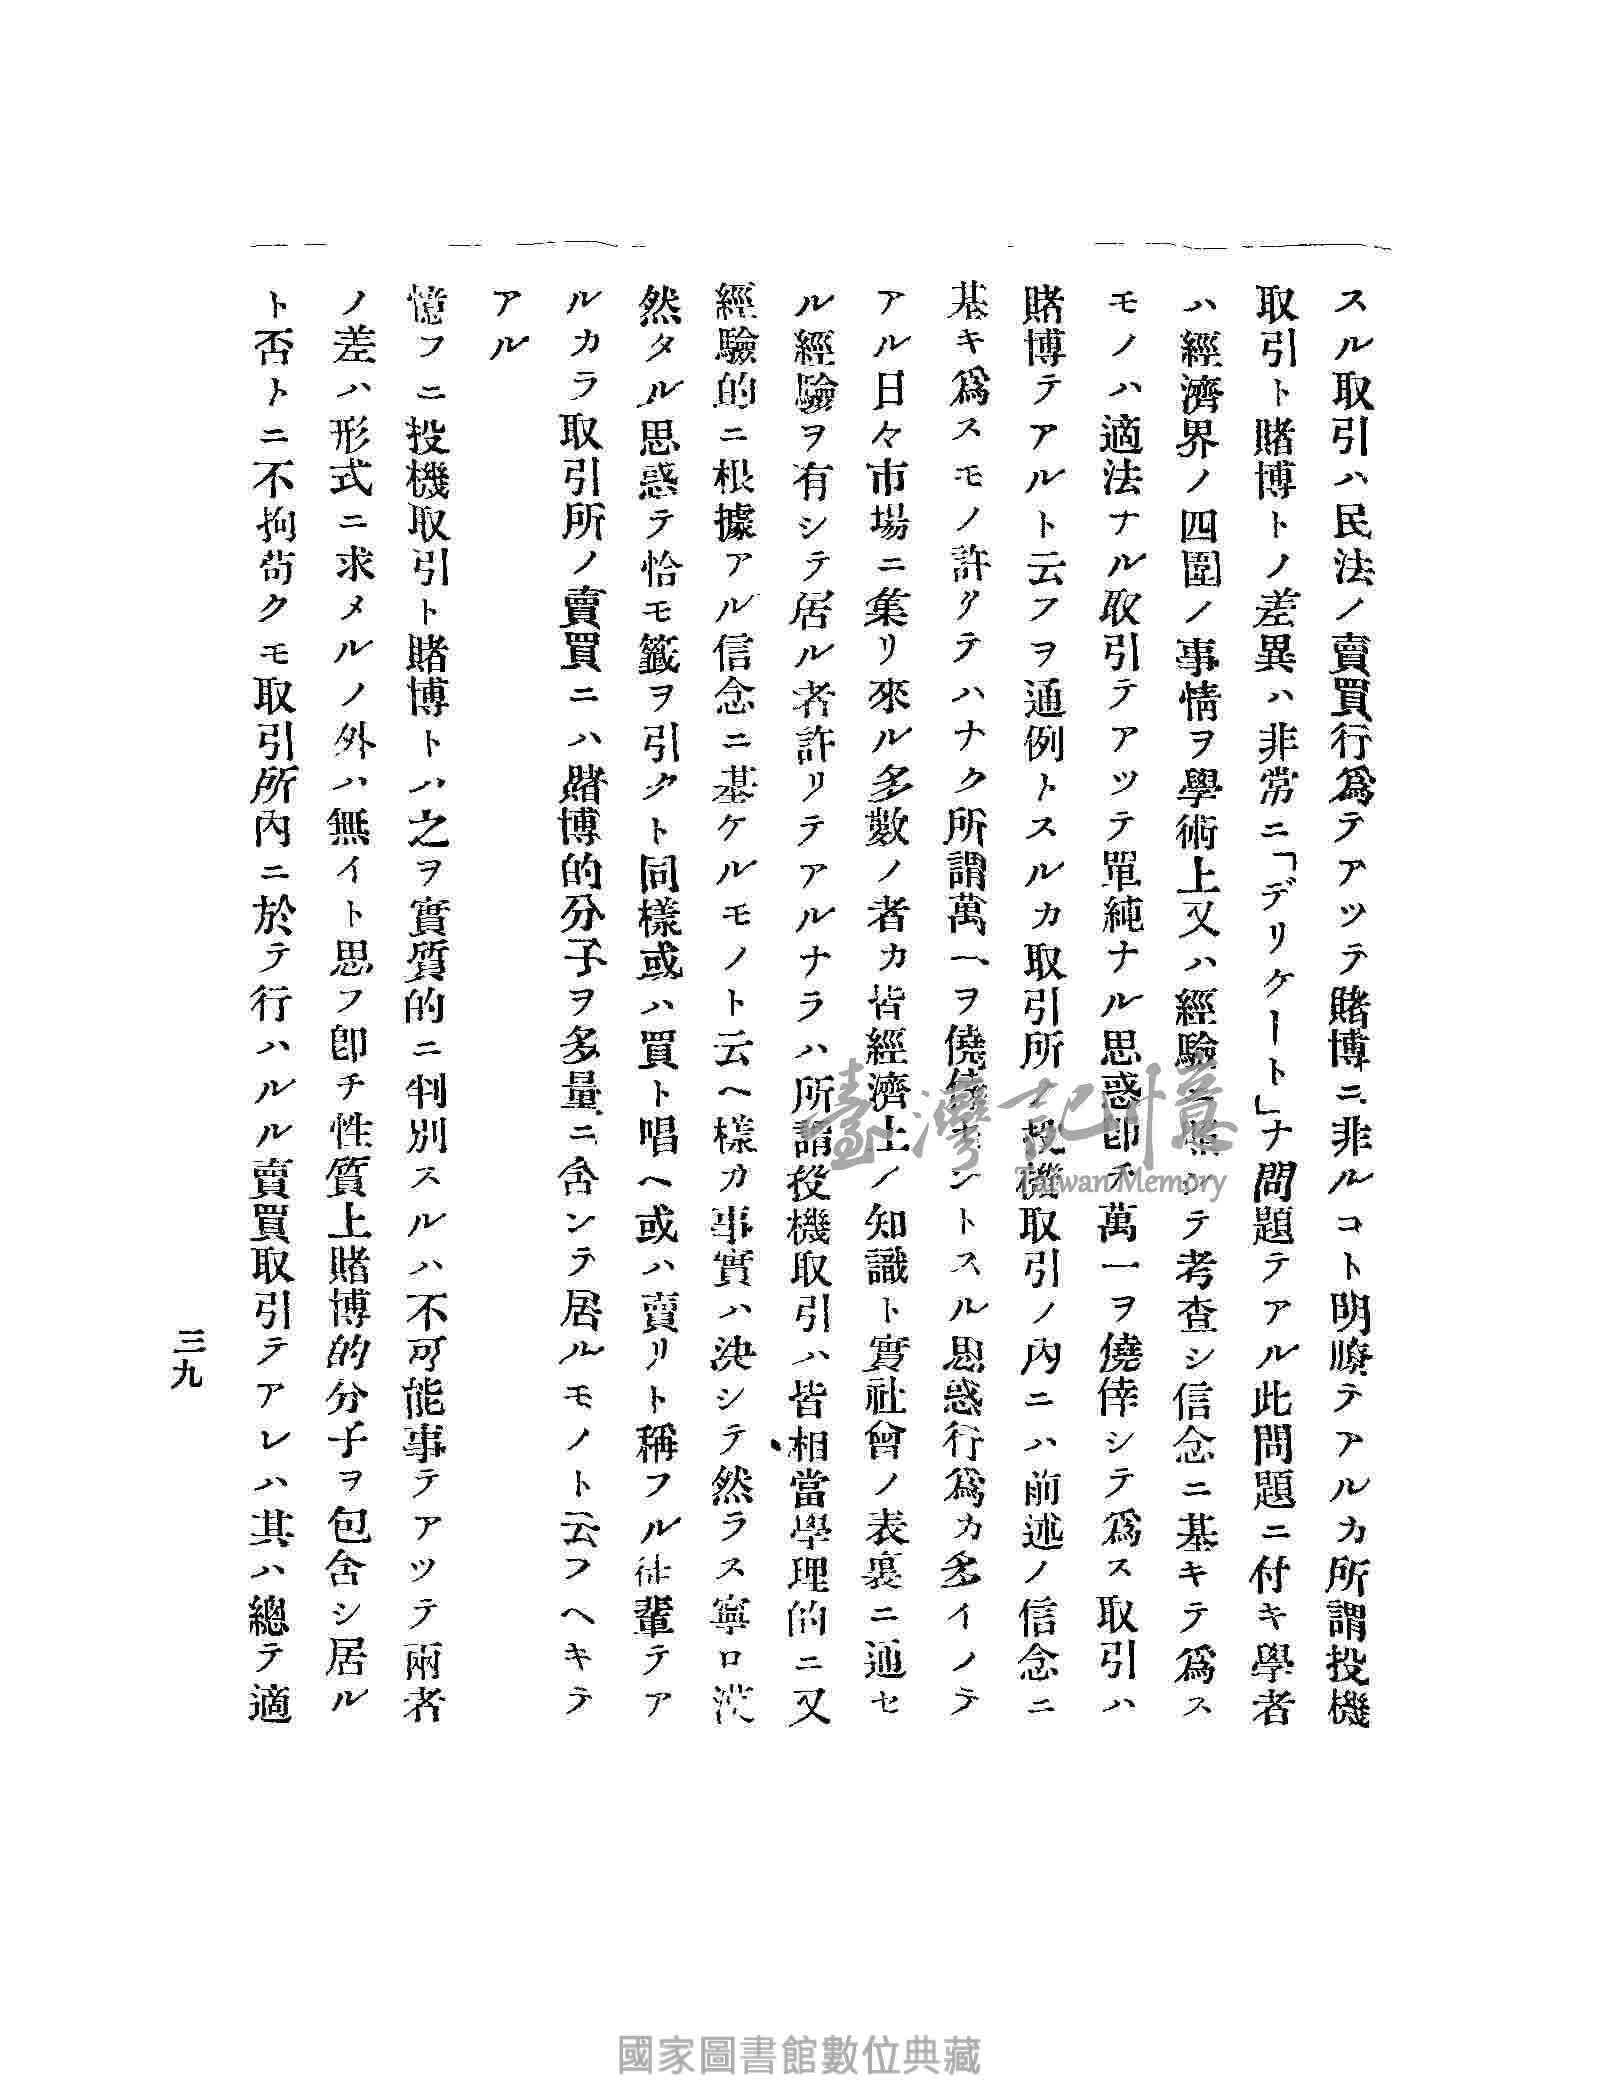 スル取引ハ民法ノ賣買行爲テアツテ賭博ニ非ルコト明瞭テアルカ所謂投機
取引ト賭博トノ差異ハ非常ニ「デリケート」ナ問題テアル此問題ニ付キ學者
ハ經濟界ノ四圍ノ事情ヲ學術上又ハ經驗ニ照シテ考査シ信念ニ基キテ爲ス
モノハ適法ナル取引テアツテ單純ナル思惑卽チ萬一ヲ僥倖シテ爲ス取引ハ
賭博テアルト云フヲ通例トスルカ取引所ノ投機取引ノ內ニハ前述ノ信念ニ
基キ爲スモノ許リテハナク所謂萬一ヲ僥倖センドスル思惑行爲カ多イノテ
アル日々市場ニ集リ來ル多數ノ者カ皆經濟上ノ知識ト實社會ノ表裏ニ通セ
ル經驗ヲ有シテ居ル者許リテアルナラハ所謂投機取引ハ皆相當學理的ニ又
經驗的ニ根據アル信念ニ基ケルモノト云ヘ樣カ事實ハ決シテ然ラス寧ロ漠
然タル思惑テ恰モ籤ヲ引クト同樣或ハ買ト唱ヘ或ハ賣リト稱フル徒輩テア
ルカラ取引所ノ賣買ニハ賭博的分子ヲ多量ニ含ンテ居ルモノト云フヘキテ
アル
憶フニ投機取引ト賭博トハ之ヲ實質的ニ判別スルハ不可能事テアツテ兩者
ノ差ハ形式ニ求メルノ外ハ無イト思フ卽チ性質上賭博的分子ヲ包含シ居ル
ト否トニ不拘苟クモ取引所內ニ於テ行ハルル賣買取引テアレハ其ハ總テ適
三九
臺灣記憶
Taiwan Memory
國家圖書館數位典藏